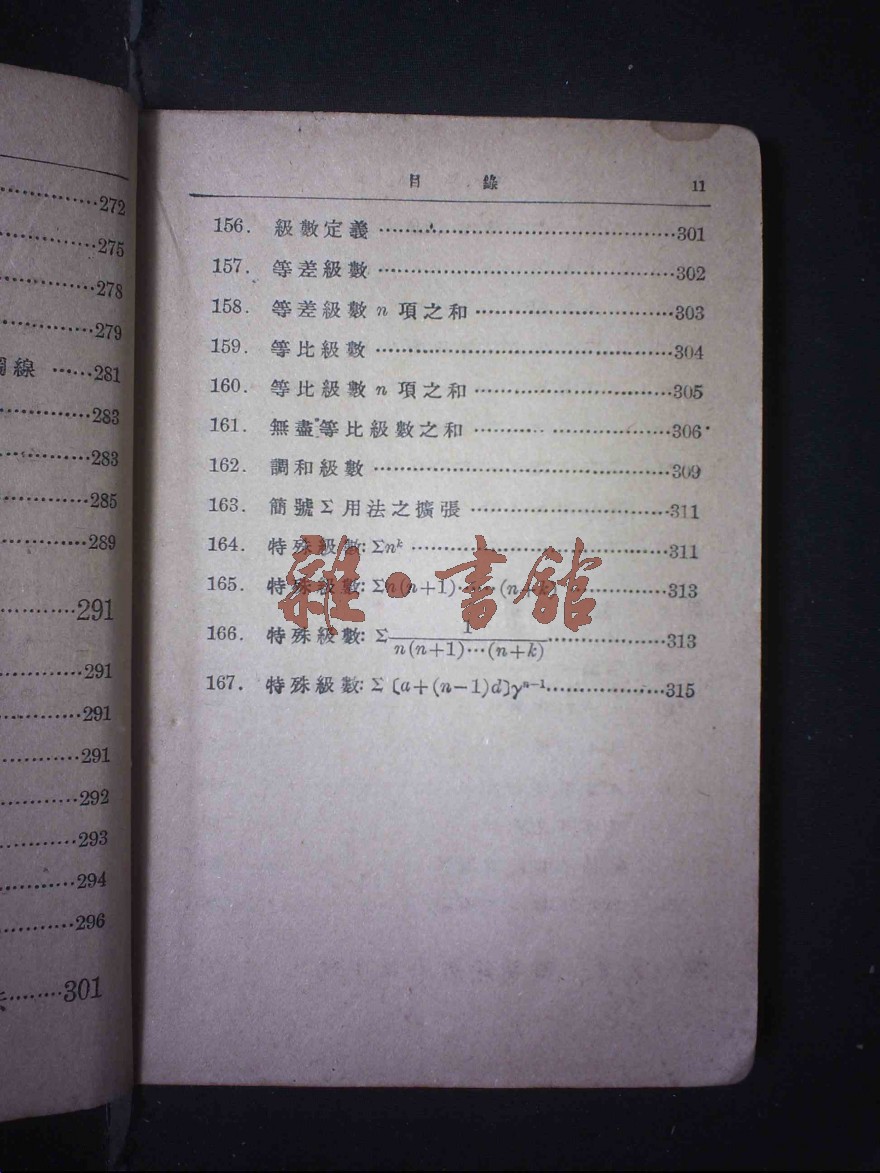 272
275
278
279
線 ……281
283
283
285
289
291
291
291
291
292
293
294
296
301
目 錄 11
156. 級數定義 ………301
157. 等差級數 ………302
158. 等差級數 n 項之和 ………303
159. 等比級數 ………304
160. 等比級數 n 項之和 ………305
161. 無盡等比級數之和 ………306
162. 調和級數 ………309
163. 簡號 Σ 用法之擴張 ………311
164. 特殊級數: Σnᵏ ………311
165. 特殊級數: Σn(n+1)……(n+k) ………313
166. 特殊級數: Σ 1/n(n+1)…(n+k) ………313
167. 特殊級數: Σ〔a+(n−1)d〕γⁿ⁻¹ ………315
雜·書館